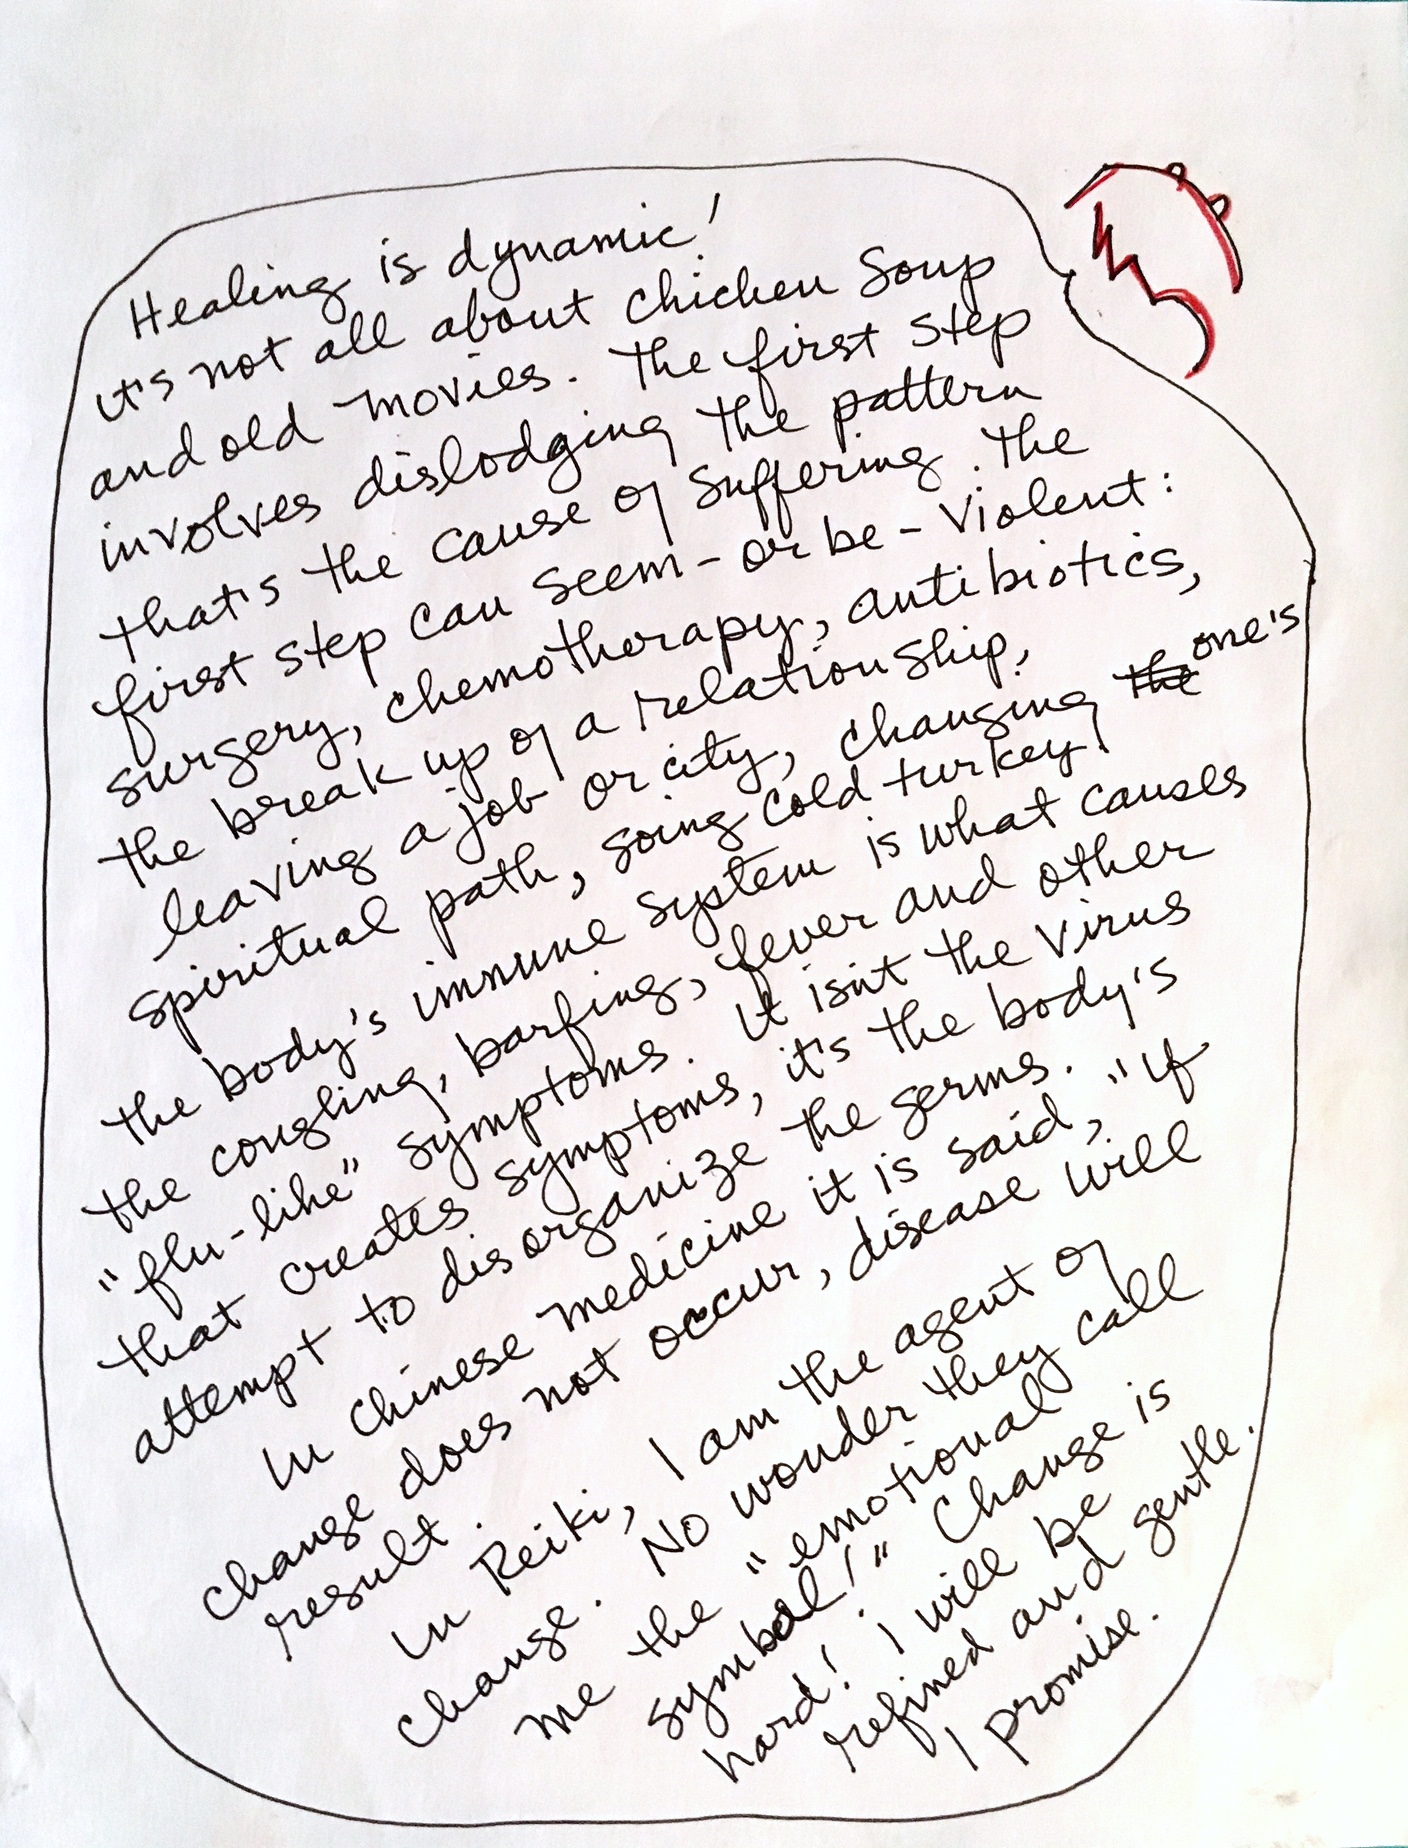 Healing is dynamic!
It's not all about chicken soup
and old movies. The first step
involves dislodging the pattern
that's the cause of suffering. The
first step can seem - or be - violent:
surgery, chemotherapy, antibiotics,
the break up of a relationship,
leaving a job or city, changing ~~the~~ one's
spiritual path, going cold turkey!
The body's immune system is what causes
the coughing, barfing, fever and other
"flu-like" symptoms. It isn't the virus
that creates symptoms, it's the body's
attempt to disorganize the germs.
In Chinese medicine it is said, "If
change does not occur, disease will
result.
In Reiki, I am the agent of
change. No wonder they call
me the "emotional
symbol!" Change is
hard! I will be
refined and gentle.
I promise.